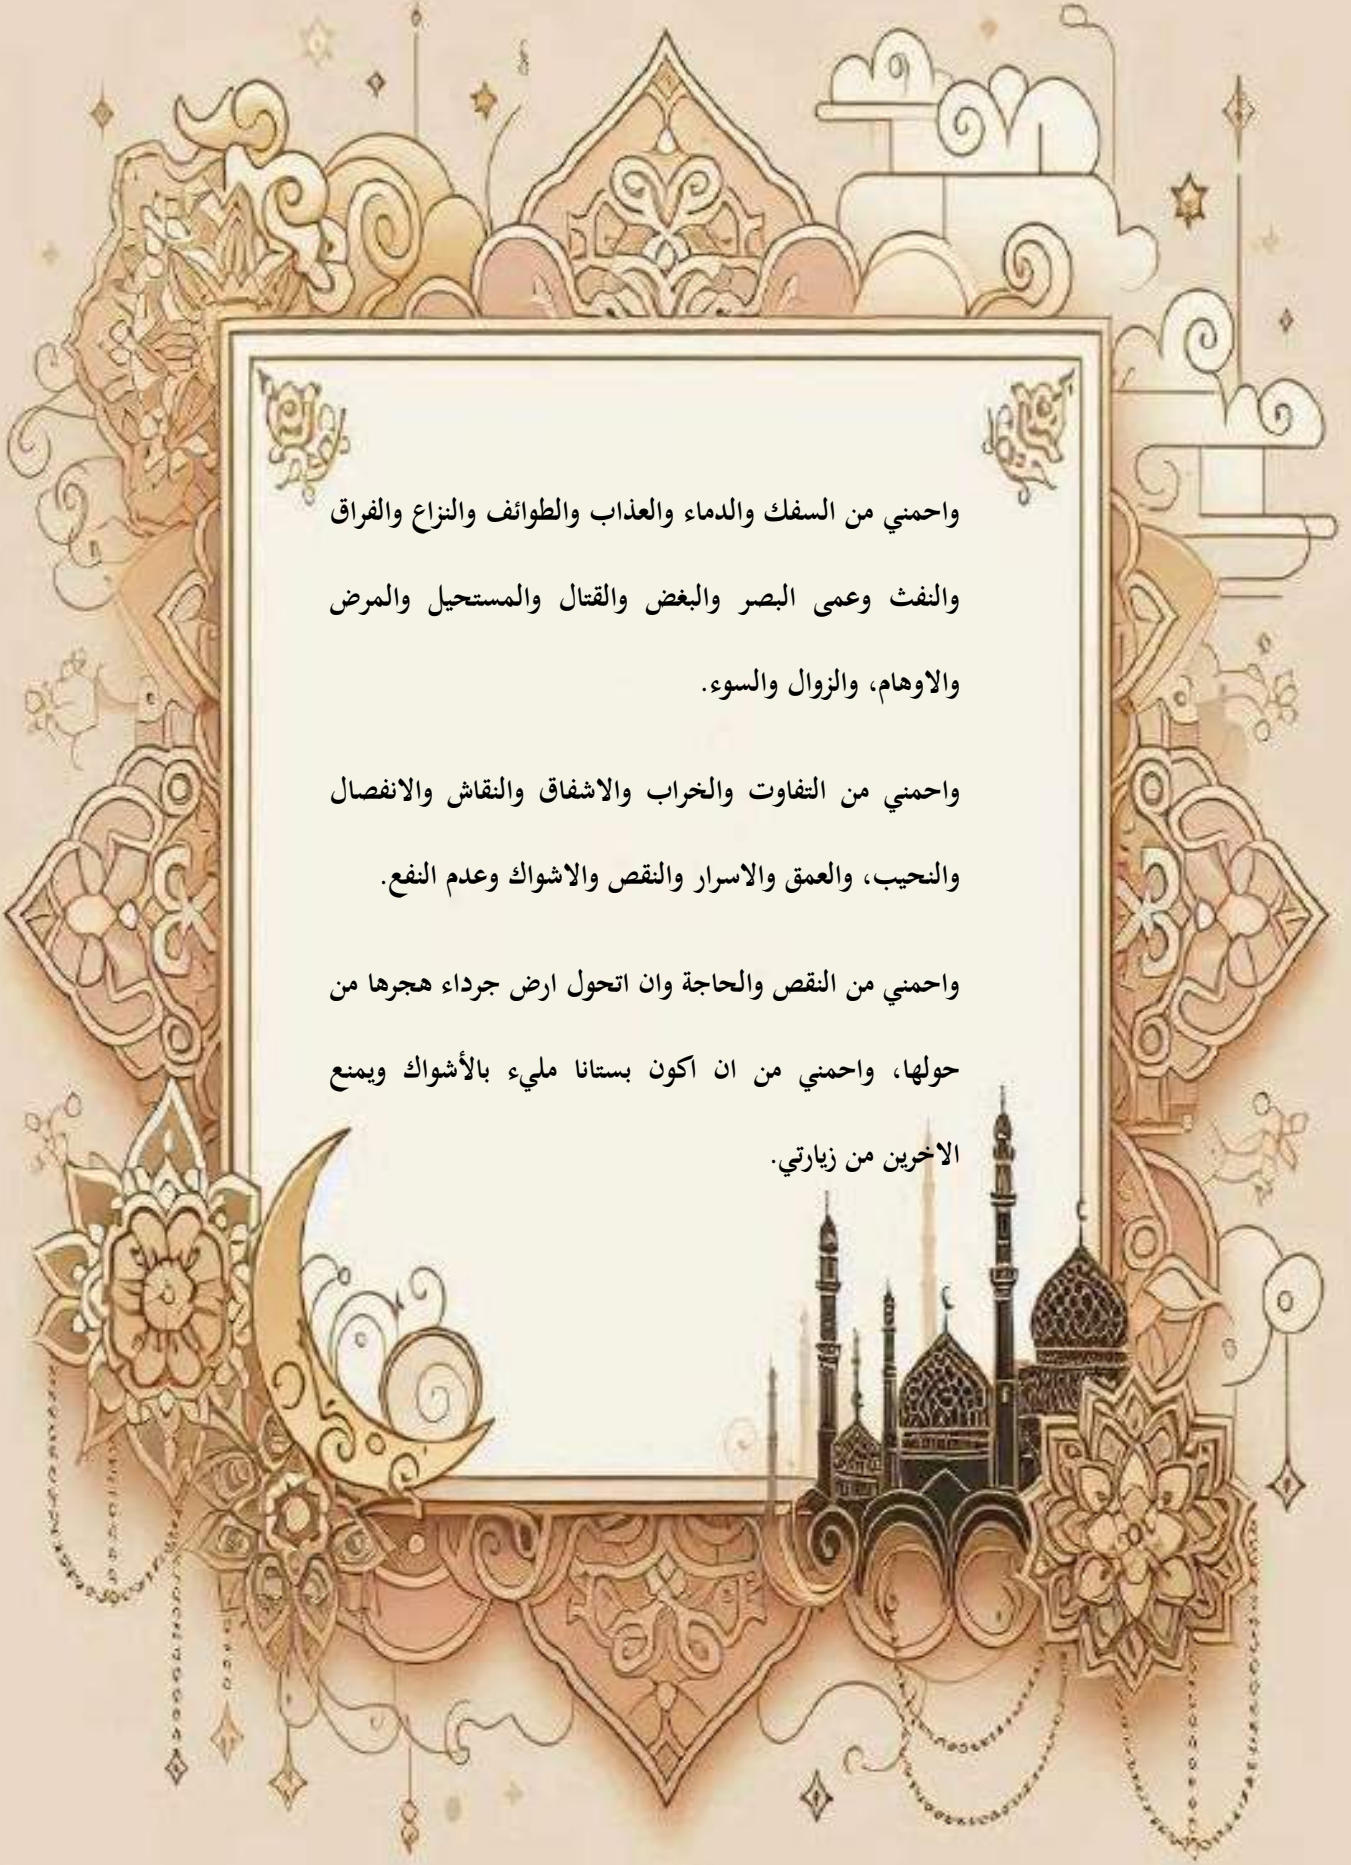 واحمني من السفك والدماء والعذاب والطوائف والنزاع والفراق
والنفث وعمى البصر والبغض والقتال والمستحيل والمرض
والاوهام، والزوال والسوء.
واحمني من التفاوت والخراب والاشفاق والنقاش والانفصال
والنحيب، والعمق والاسرار والنقص والاشواك وعدم النفع.
واحمني من النقص والحاجة وان اتحول ارض جرداء هجرها من
حولها، واحمني من ان اكون بستانا مليء بالأشواك ويمنع
الاخرين من زيارتي.